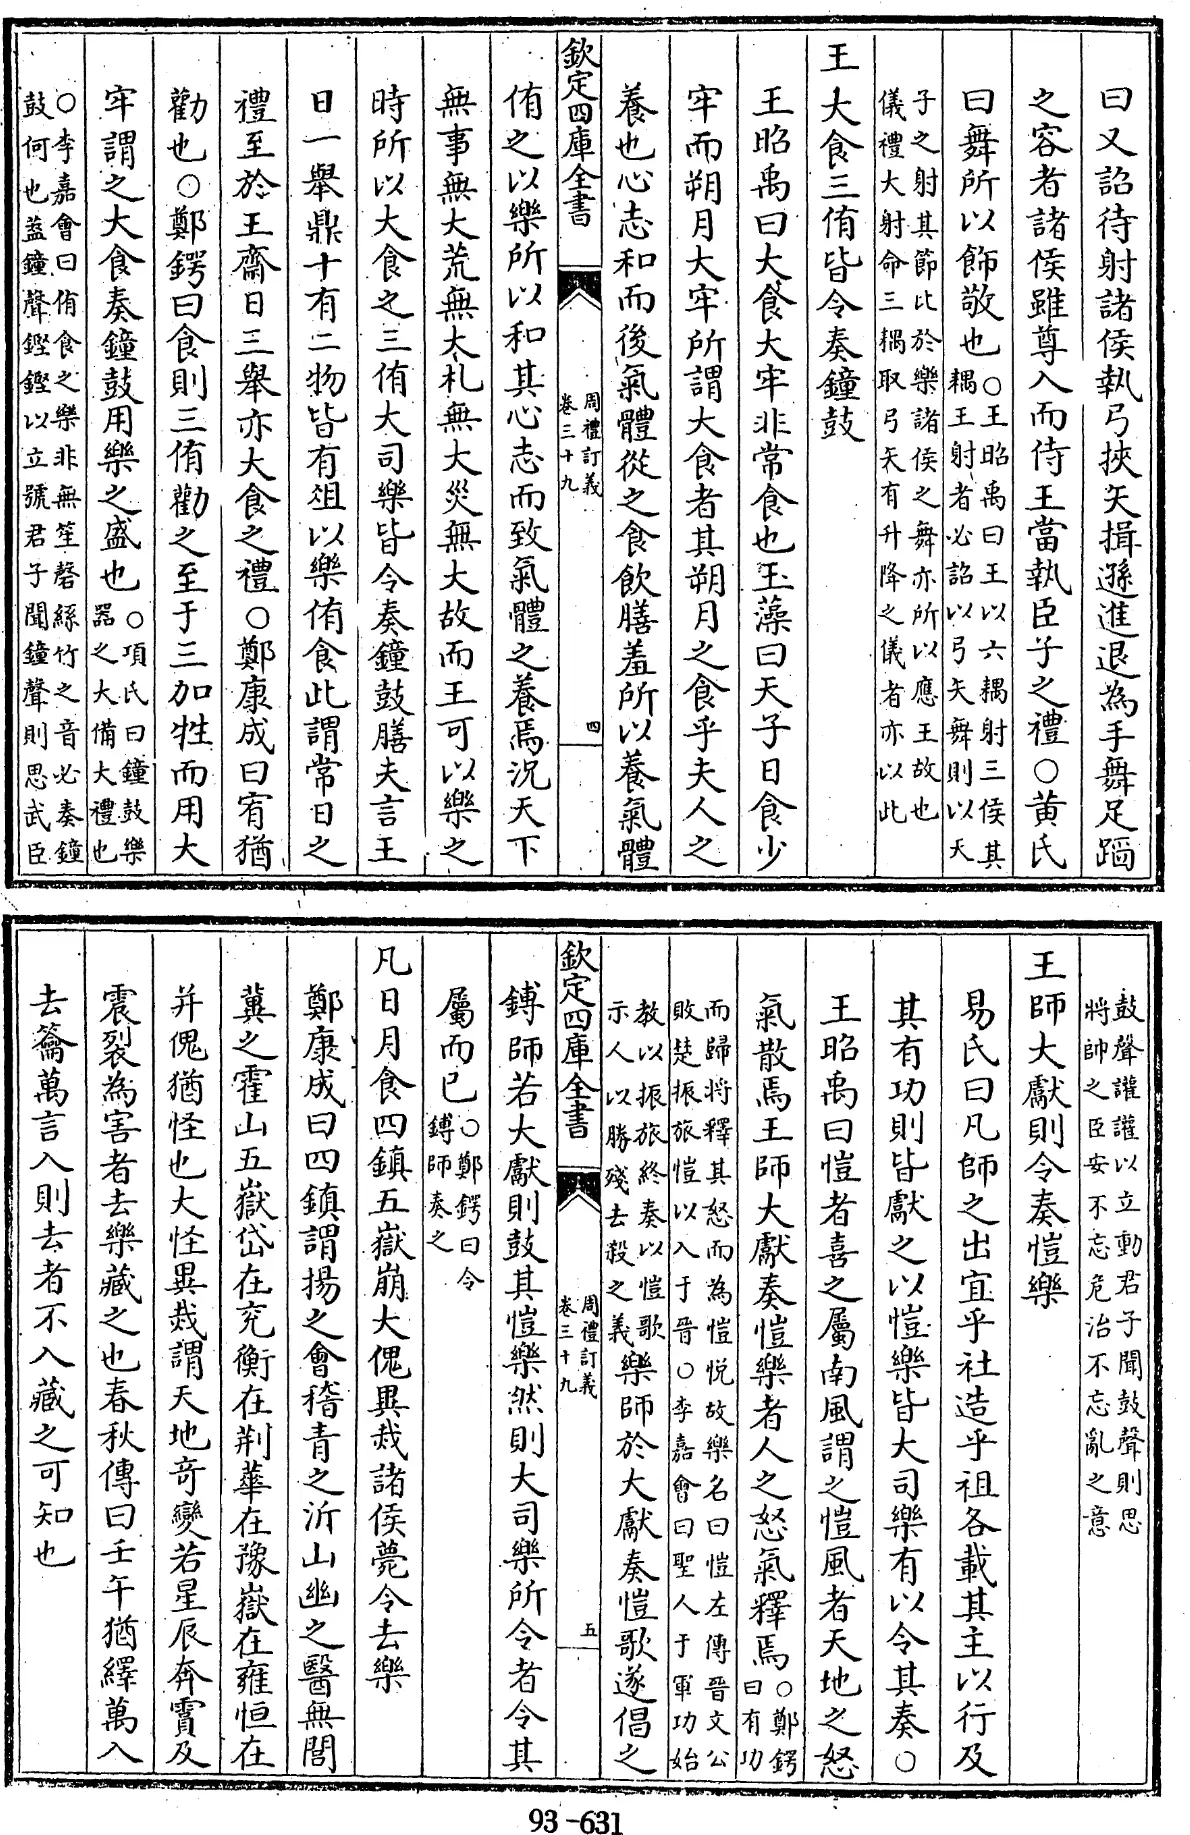 曰又詔待射諸侯執弓挾矢揖遜進退為手舞足蹈
之容者諸侯雖尊入而侍王當執臣子之禮○黄氏
曰舞所以飾敬也○王昭禹曰王以六耦射三侯其
耦王射者必詔以弓矢舞則以天
子之射其節比於樂諸侯之舞亦所以應王故也
儀禮大射命三耦取弓矢有升降之儀者亦以此
王大食三侑皆令奏鐘鼓
王昭禹曰大食大牢非常食也玉藻曰天子日食少
牢而朔月大牢所謂大食者其朔月之食乎夫人之
養也心志和而後氣體從之食飲膳羞所以養氣體
欽定四庫全書
周禮訂義
卷三十九
四
侑之以樂所以和其心志而致氣體之養焉況天下
無事無大荒無大札無大災無大故而王可以樂之
時所以大食之三侑大司樂皆令奏鐘鼓膳夫言王
日一舉鼎十有二物皆有俎以樂侑食此謂常日之
禮至於王齋日三舉亦大食之禮○鄭康成曰宥猶
勸也○鄭鍔曰食則三侑勸之至于三加牲而用大
牢謂之大食奏鐘鼓用樂之盛也○項氏曰鐘鼓樂
器之大備大禮也
○李嘉會曰侑食之樂非無笙磬絲竹之音必奏鐘
鼓何也蓋鐘聲鏗鏗以立號君子聞鐘聲則思武臣
鼓聲讙讙以立動君子聞鼓聲則思
將帥之臣安不忘危治不忘亂之意
王師大獻則令奏愷樂
易氏曰凡師之出宜乎社造乎祖各載其主以行及
其有功則皆獻之以愷樂皆大司樂有以令其奏○
王昭禹曰愷者喜之屬南風謂之愷風者天地之怒
氣散焉王師大獻奏愷樂者人之怒氣釋焉○鄭鍔
曰有功
而歸将釋其怒而為愷悅故樂名曰愷左傳晉文公
敗楚振旅愷以入于晉○李嘉會曰聖人于軍功始
教以振旅終奏以愷歌
示人以勝殘去殺之義樂師於大獻奏愷歌遂倡之
欽定四庫全書
周禮訂義
卷三十九
五
鎛師若大獻則鼓其愷樂然則大司樂所令者令其
屬而已○鄭鍔曰令
鎛師奏之
凡日月食四鎮五嶽崩大傀異烖諸侯薨令去樂
鄭康成曰四鎮謂揚之會稽青之沂山幽之醫無閭
冀之霍山五嶽岱在兖衡在荆華在豫嶽在雍恒在
并傀猶怪也大怪異烖謂天地奇變若星辰奔霣及
震裂為害者去樂藏之也春秋傳曰壬午猶繹萬入
去籥萬言入則去者不入藏之可知也
93-631